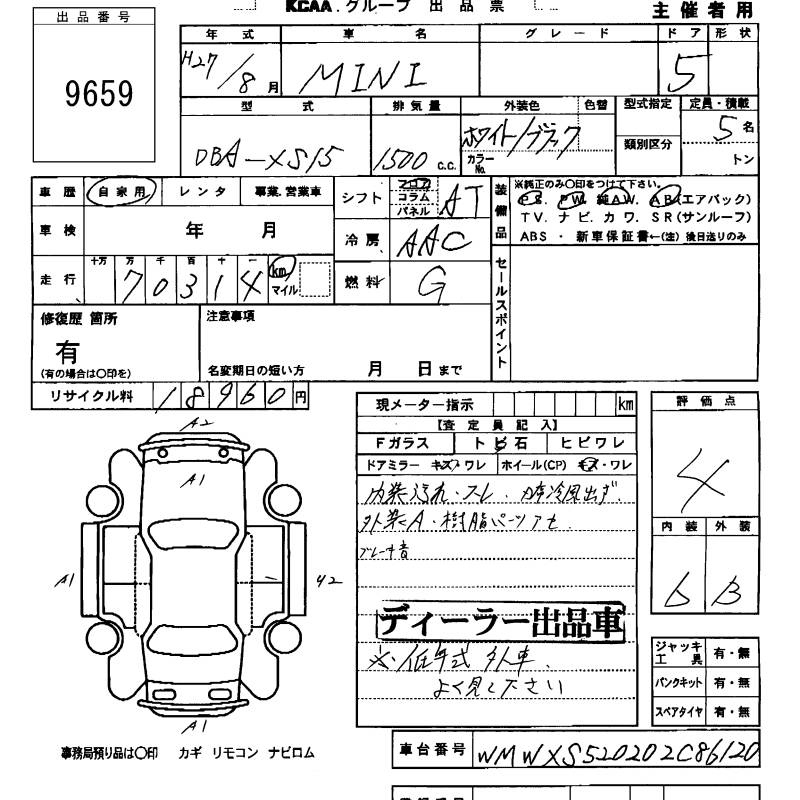 KCAA.グループ 出品票
主催者用
出品番号
9659
年式 車名 グレード ドア 形状
H27/8月 MINI 5
型式 排気量 外装色 色替 型式指定 定員・積載
DBA-XS15 1500 c.c. ホワイト/ブラック カラーNo. 類別区分 5名
トン
車歴 自家用 レンタ 事業.営業車 シフト フロア コラム パネル AT
装備品 ※純正のみ〇印をつけて下さい。
PS. PW. 純AW. AB(エアバック)
TV. ナビ. カワ. SR(サンルーフ)
ABS ・ 新車保証書←(注) 後日送りのみ
車検 年 月 冷房 AAC
走行 十万 万 千 百 十 一 km マイル
70314
燃料 G
セールスポイント
修復歴 箇所 注意事項
有
(有の場合は〇印を) 名変期日の短い方 月 日まで
リサイクル料 18960円
現メーター指示 km
評価点
4
【査定員記入】
Fガラス トビ石 ヒビワレ
ドアミラー キズ・ワレ ホイール(CP) キズ・ワレ
内装汚れ・スレ.
外装A・樹脂パーツアセ.
ブレーキ音
内装 外装
b B
ディーラー出品車
※低年式 外車.
よく見て下さい
A2
A1
A1
42
A1
ジャッキ工具 有・無
パンクキット 有・無
スペアタイヤ 有・無
事務局預り品は〇印 カギ リモコン ナビロム
車台番号 WMWXS520202C86120